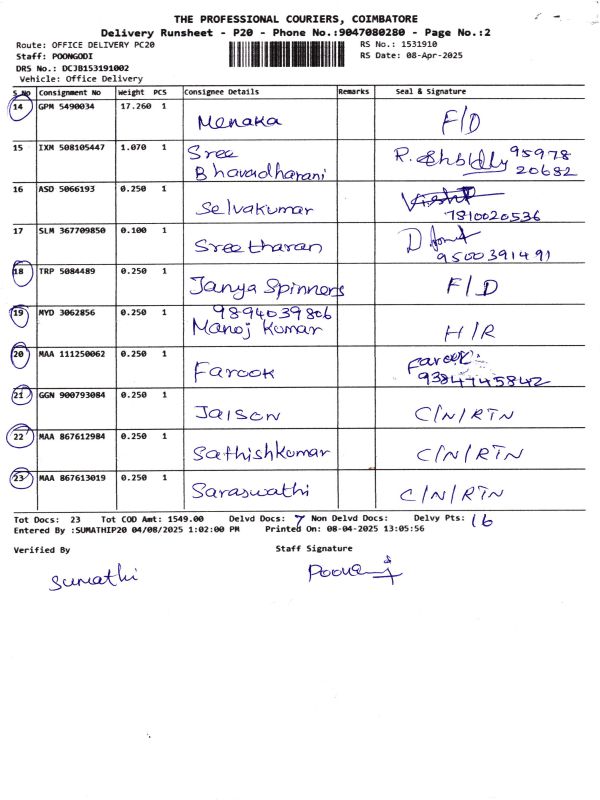 THE PROFESSIONAL COURIERS, COIMBATORE
Delivery Runsheet - P20 - Phone No.:9047080280 - Page No.:2
Route: OFFICE DELIVERY PC20 RS No.: 1531910
Staff: POONGODI RS Date: 08-Apr-2025
DRS No.: DCJB153191002
Vehicle: Office Delivery
S.No Consignment No Weight PCS Consignee Details Remarks Seal & Signature
14 GPM 5490034 17.260 1 Menaka F/D
15 IXM 508105447 1.070 1 Sree Bhavadharani R. 95978 20682
16 ASD 5066193 0.250 1 Selvakumar 7810020536
17 SLM 367709850 0.100 1 Sreetharan D 9500391491
18 TRP 5084489 0.250 1 Janya Spinners F/D
19 MYD 3062856 0.250 1 9894039806 Manoj Kumar H/R
20 MAA 111250062 0.250 1 Farook Farook 9384745842
21 GGN 900793084 0.250 1 Jaison C/N/RTN
22 MAA 867612984 0.250 1 Sathishkumar C/N/RTN
23 MAA 867613019 0.250 1 Saraswathi C/N/RTN
Tot Docs: 23 Tot COD Amt: 1549.00 Delvd Docs: 7 Non Delvd Docs: Delvy Pts: 16
Entered By :SUMATHIP20 04/08/2025 1:02:00 PM Printed On: 08-04-2025 13:05:56
Verified By Staff Signature
Sumathi